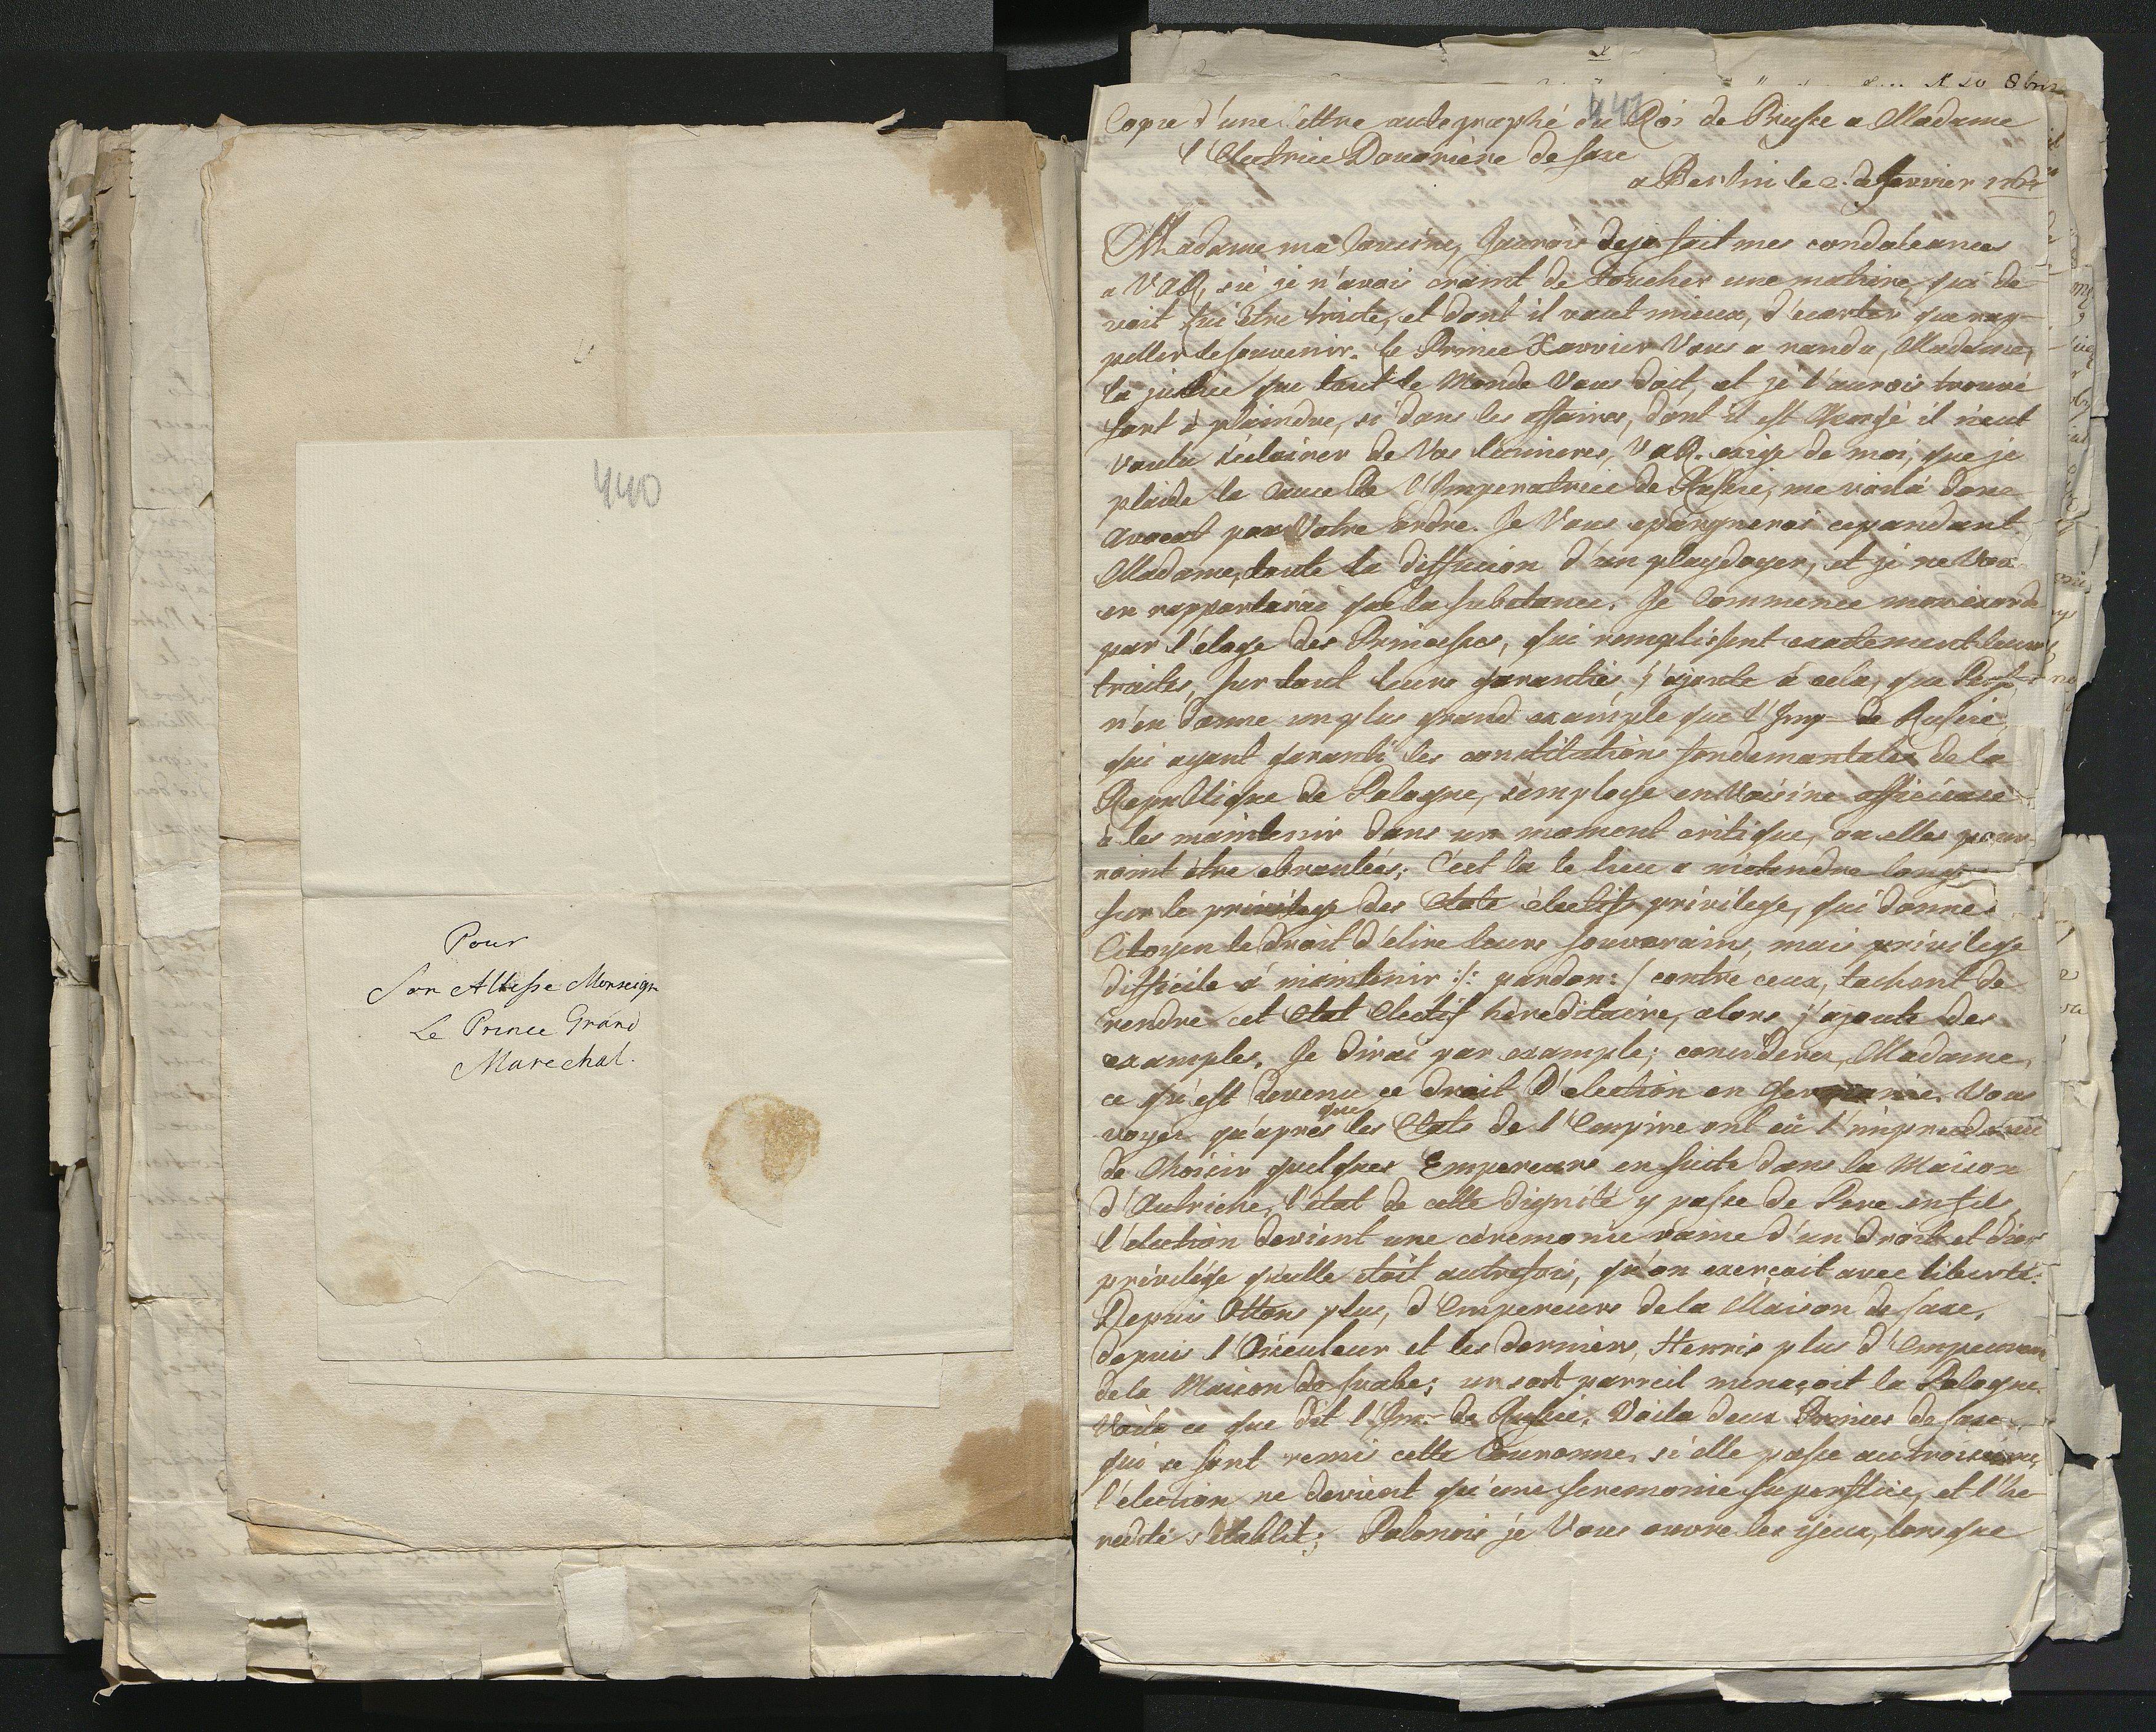 440
Pour
Son Altesse Monseigr
Le Prince Grand
Marechal.
441
Copie d'une lettre autographé du Roi de Prusse a Madame
l'Electrice Douariere de Saxe
a Berlin le 2. de Janvier
Madame ma Cousine, Jaurois deja fait mes condoleances
a VAR, si je n'avois craint de toucher une matiere, qui de
voit lui être triste, et dont il vaut mieux, d'ecarter que rap-
peller le souvenir. Le Prince Xavvier Vous a randu, Madame,
la justice que tout le Monde Vous doit, et je l'aurois trouvé
fort à plaindre, si dans les affaires, dont il est chargé il n'eut
voulu s'eclairer de Vos lumieres, VAR. exige de moi, que je
plaide la cause de l'Imperatrice de Russie, me voilà donc
avocat par Votre ordre. Je Vous epargnerai cependant
Madame, toute la diffusion d'un playdoyer, et je ne Vous
en rapporterai que la substance. Je commence mon exorde
par l'éloge des Princesses, qui remplissent exactement leurs
traités, sur tout leurs garanties, j'ajoute à cela, que Pers
n'en donne un plus grand example que l'Imp- de Russie
qui ayant garanti les constitutions fondemantales de la
Republique de Pologne, s'employe en Voisine officieuse
à les maintenir dans un moment critique, ou elles pour
roint être ebranlées; C'est la le lieu a m'etendre long
sur le privilege des Etats électifs privilege, qui donne
Citoyen le droit d'élire leurs souverains, mais privilege
difficile à maintenir :/: pardon: / contre ceux, tachent de
rendre cet Etat Electif héreditaire, alors j'ajoute des
examples. Je dirai par example; considerez, Madame,
ce qu'est devenu ce droit d'election en Germanie. Vous
voyez qu'après que les Etats de l'Empire ont eü l'imprudence
de choisir quelques Empereurs en suite dans la Maison
d'Autriche, l'état de cette dignité y passe de Pere en fils
l'élection devient une céremonie vaine d'un droit et d'un
privilége qu'elle étoit autrefois, qu'on exerçait avec liberté.
Depuis Ottons plus, d'Empereurs de la Maison de Saxe,
depuis l'Oiseuleur et les derniers, Henris plus d'Empereurs
de la Maison de Suabe; un sort parreil menaçoit la Pologne.
Voilà ce que dit l'Imp- de Russie. Voila deux Princes de Saxe
qui se sont remis cette Couronne, si elle passe au troisieme,
l'élection ne devient qu'une seremonie superflüe, et l'he
redité s'etablit; Polonois je Vous ouvre les yeux, lorsque